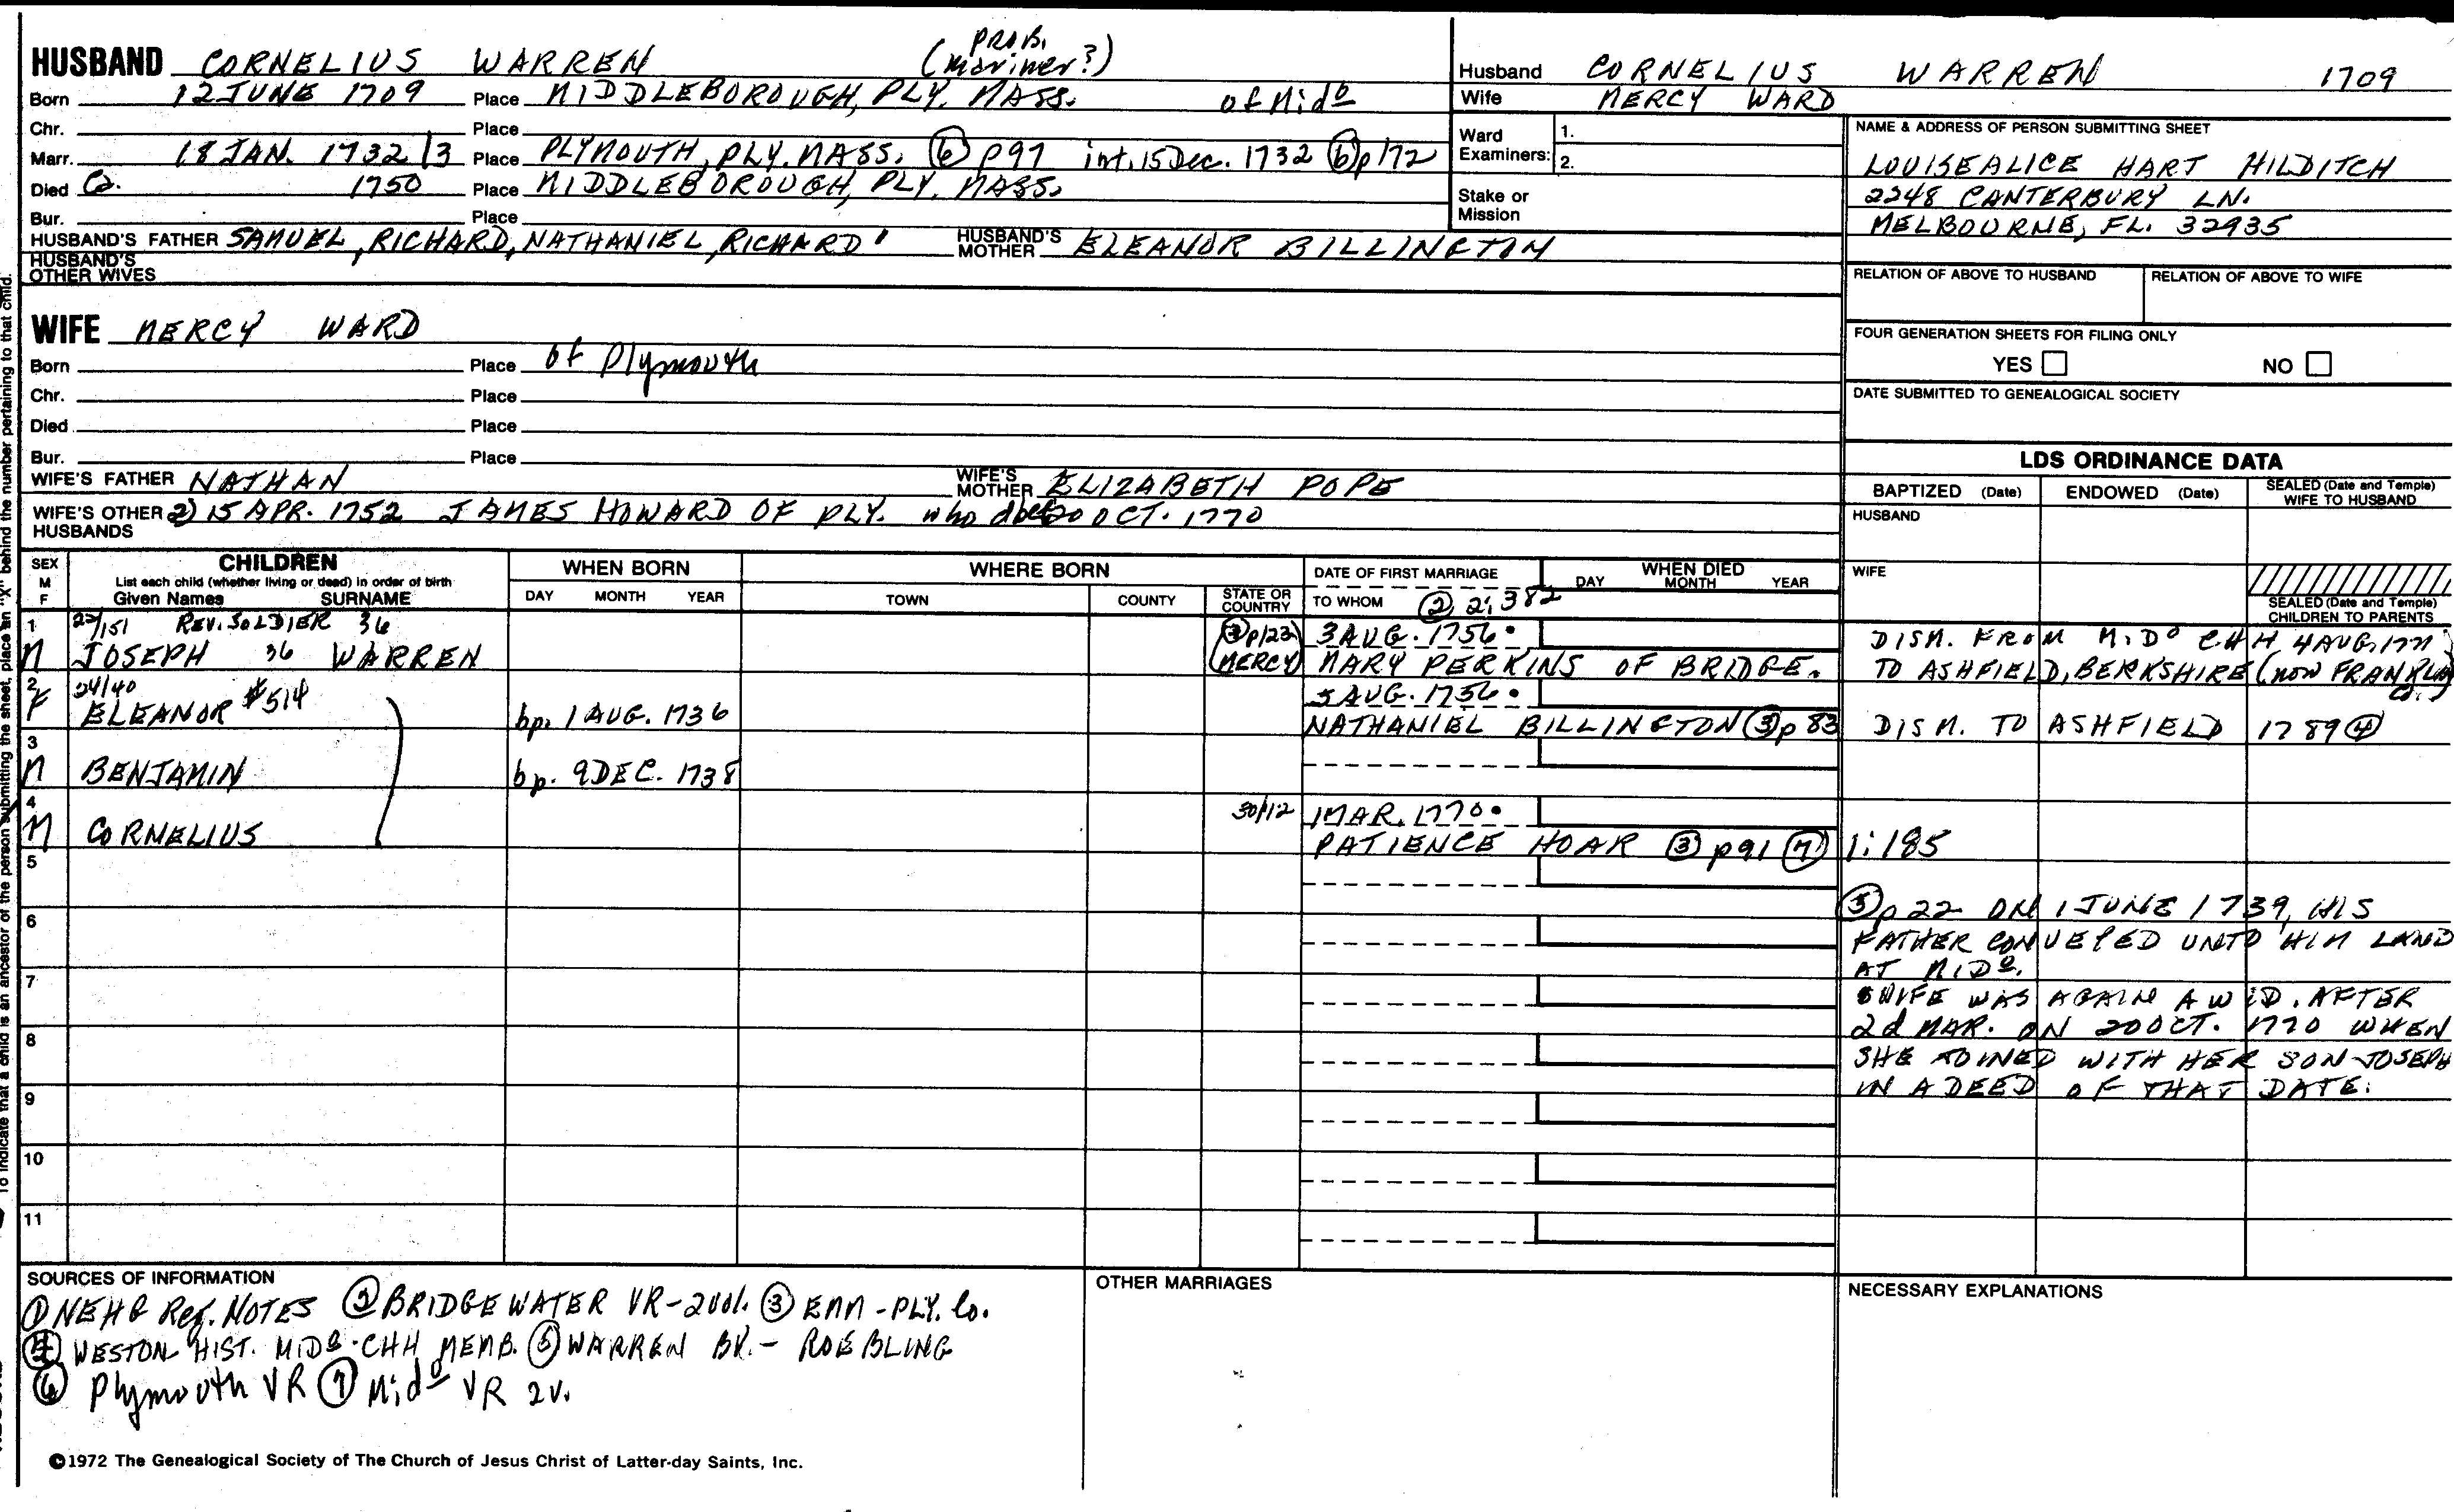 HUSBAND CORNELIUS WARREN (PROB. Mariner?)
Born 12 JUNE 1709 Place MIDDLEBOROUGH, PLY. MASS. of Mido
Chr. Place
Marr. 18 JAN. 1732/3 Place PLYMOUTH, PLY. MASS. (6) p97 int. 15 Dec. 1732 (6) p172
Died Ca. 1750 Place MIDDLEBOROUGH, PLY. MASS.
Bur. Place
HUSBAND'S FATHER SAMUEL, RICHARD, NATHANIEL, RICHARD' HUSBAND'S MOTHER ELEANOR BILLINGTON
HUSBAND'S OTHER WIVES
WIFE MERCY WARD
Born Place of Plymouth
Chr. Place
Died Place
Bur. Place
WIFE'S FATHER NATHAN WIFE'S MOTHER ELIZABETH POPE
WIFE'S OTHER HUSBANDS 2) 15 APR. 1752 JAMES HOWARD OF PLY. who d bef 20 OCT. 1770
Husband CORNELIUS WARREN 1709
Wife MERCY WARD
Ward Examiners: 1.
2.
Stake or Mission
NAME & ADDRESS OF PERSON SUBMITTING SHEET
LOUISEALICE HART HILDITCH
2248 CANTERBURY LN.
MELBOURNE, FL. 32935
RELATION OF ABOVE TO HUSBAND RELATION OF ABOVE TO WIFE
FOUR GENERATION SHEETS FOR FILING ONLY
YES NO
DATE SUBMITTED TO GENEALOGICAL SOCIETY
LDS ORDINANCE DATA
BAPTIZED (Date) ENDOWED (Date) SEALED (Date and Temple) WIFE TO HUSBAND
HUSBAND
WIFE
SEALED (Date and Temple) CHILDREN TO PARENTS
SEX M F CHILDREN List each child (whether living or dead) in order of birth Given Names SURNAME
WHEN BORN DAY MONTH YEAR
WHERE BORN TOWN COUNTY STATE OR COUNTRY
DATE OF FIRST MARRIAGE TO WHOM (2) 2:382
WHEN DIED DAY MONTH YEAR
1 /151 REV. SOLDIER 36 (3) p123 3 AUG. 1756
M JOSEPH 36 WARREN (MERCY) MARY PERKINS OF BRIDGE.
DISM. FROM MIDo CHH 4 AUG.
TO ASHFIELD, BERKSHIRE (NOW FRANKLIN Co.)
2 24/40 5 AUG. 1756
F ELEANOR #514 bp. 1 AUG. 1736 NATHANIEL BILLINGTON (3) p 83 DISM. TO ASHFIELD 1789 (4)
3
M BENJAMIN bp. 9 DEC. 1738
4 30/12 1 MAR. 1770
M CORNELIUS PATIENCE HOAR (3) p91 (7) 1:185
5
6
7
8
9
10
11
(5) p 22 ON 1 JUNE 1739, HIS
FATHER CONVEYED UNTO HIM LAND
AT MIDo.
WIFE WAS AGAIN A WID. AFTER
2d MAR. ON 20 OCT. 1770 WHEN
SHE JOINED WITH HER SON JOSEPH
IN A DEED OF THAT DATE.
SOURCES OF INFORMATION
(1) NEHG Reg. NOTES (2) BRIDGEWATER VR-2vol. (3) EMM - PLY. Co.
(4) WESTON HIST. MIDo - CHH MEMB. (5) WARREN BK. - ROEBLING
(6) Plymouth VR (7) Mido VR 2v.
OTHER MARRIAGES
NECESSARY EXPLANATIONS
©1972 The Genealogical Society of The Church of Jesus Christ of Latter-day Saints, Inc.
behind the number pertaining to that child.
To indicate that a child is an ancestor of the person submitting the sheet, place an "X"